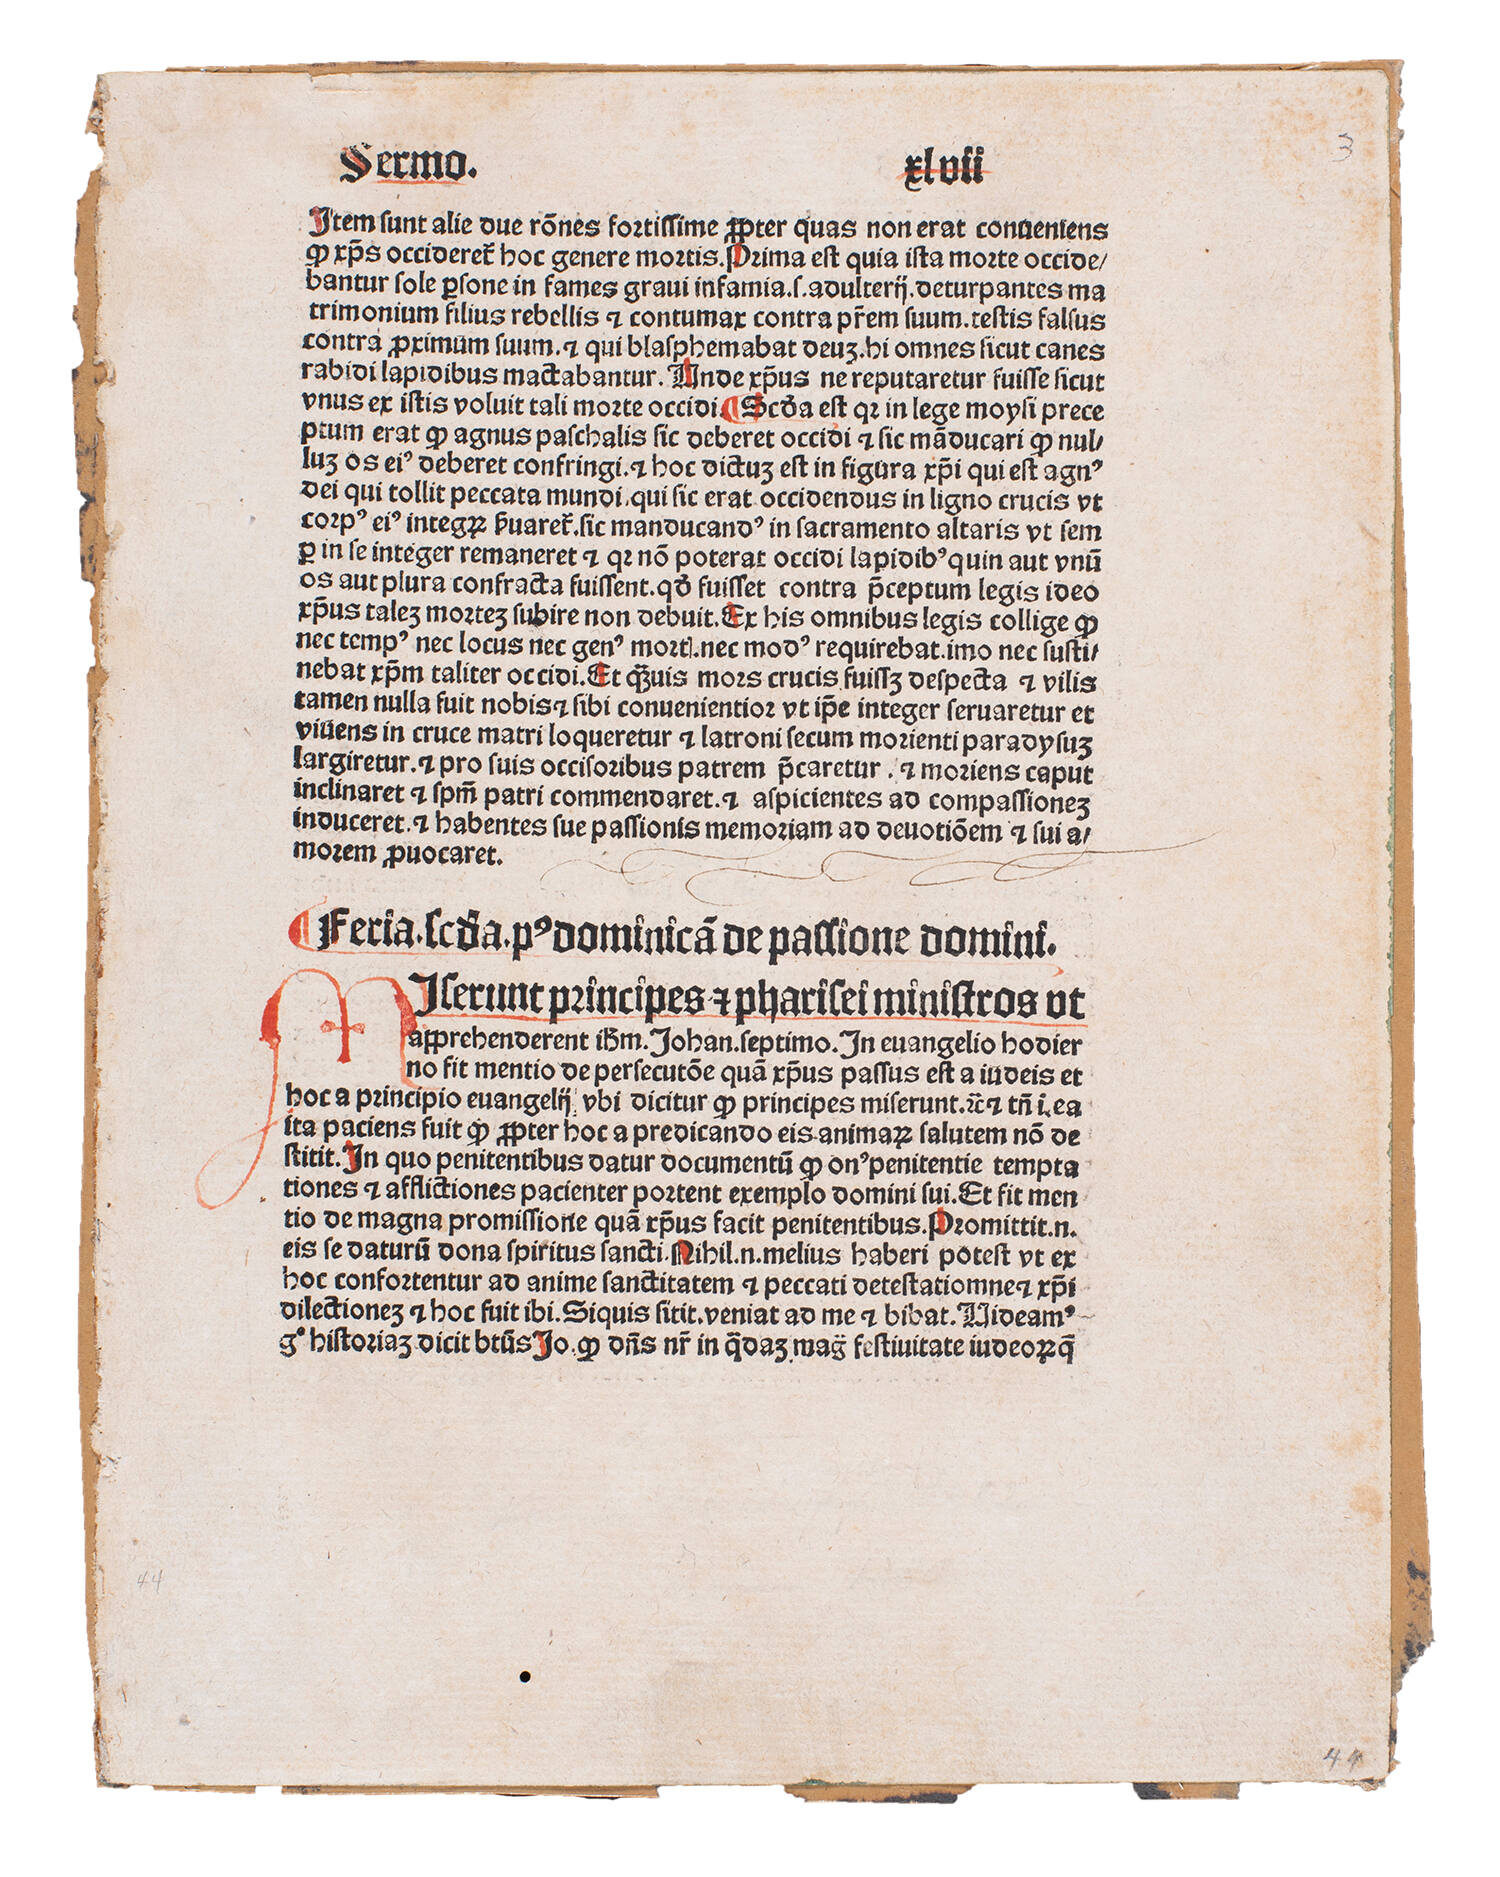 Sermo. xlvii
3
Item sunt alie due rōnes fortissime ꝓpter quas non erat conueniens
ꝙ xp̄s occideret᷑ hoc genere mortis. Prima est quia ista morte occide/
bantur sole ꝑsone in fames graui infamia.s.adulterij.deturpantes ma
trimonium filius rebellis ⁊ contumax contra pr̄em suum.testis falsus
contra ꝓximum suum.⁊ qui blasphemabat deuꝫ.hi omnes sicut canes
rabidi lapidibus mactabantur. Unde xp̄us ne reputaretur fuisse sicut
vnus ex istis voluit tali morte occidi. ¶ Scd̄a est qꝛ in lege moysi prece
ptum erat ꝙ agnus paschalis sic deberet occidi ⁊ sic māducari ꝙ nul/
luꝫ os eiꝰ deberet confringi.⁊ hoc dictuꝫ est in figura xp̄i qui est agnꝰ
dei qui tollit peccata mundi.qui sic erat occidendus in ligno crucis vt
corpꝰ eiꝰ integꝝ ẜuaret᷑.sic manducandꝰ in sacramento altaris vt sem
ꝑ in se integer remaneret ⁊ qꝛ nō poterat occidi lapidibꝰ quin aut vnū
os aut plura confracta fuissent.qd̄ fuisset contra p̄ceptum legis ideo
xp̄us taleꝫ morteꝫ subire non debuit. Ex his omnibus legis collige ꝙ
nec tempꝰ nec locus nec genꝰ mortꝭ.nec modꝰ requirebat.imo nec susti/
nebat xp̄m taliter occidi. Et qᷓuis mors crucis fuissꝫ despecta ⁊ vilis
tamen nulla fuit nobis ⁊ sibi conuenientior vt ip̄e integer seruaretur et
viuens in cruce matri loqueretur ⁊ latroni secum morienti paradysuꝫ
largiretur.⁊ pro suis occisoribus patrem p̄caretur. ⁊ moriens caput
inclinaret ⁊ sp̄m patri commendaret.⁊ aspicientes ad compassioneꝫ
induceret.⁊ habentes sue passionis memoriam ad deuotiōem ⁊ sui a/
morem ꝓuocaret.
¶ Feria.scd̄a.pꝰ dominicā de passione domini.
MIserunt principes ⁊ pharisei ministros vt
apprehenderent ih̄m. Johan.septimo. In euangelio hodier
no fit mentio de persecutōe quā xp̄us passus est a iudeis et
hoc a principio euangelij vbi dicitur ꝙ principes miserunt.⁊c̄ ⁊ tn̄ i.ea
ita paciens fuit ꝙ ꝓpter hoc a predicando eis animaꝝ salutem nō de
stitit. In quo penitentibus datur documentū ꝙ onꝰ penitentie tempta
tiones ⁊ afflictiones pacienter portent exemplo domini sui. Et fit men
tio de magna promissione quā xp̄us facit penitentibus. Promittit.n.
eis se daturū dona spiritus sancti. Nihil.n.melius haberi potest vt ex
hoc confortentur ad anime sanctitatem ⁊ peccati detestatiomne ⁊ xp̄i
dilectioneꝫ ⁊ hoc fuit ibi. Siquis sitit.veniat ad me ⁊ bibat. Uideamꝰ
g° historiaꝫ dicit btūs Jo. ꝙ dn̄s nr̄ in qᷓdaꝫ mag̈ festiuitate iudeoꝝ q̄
44
44